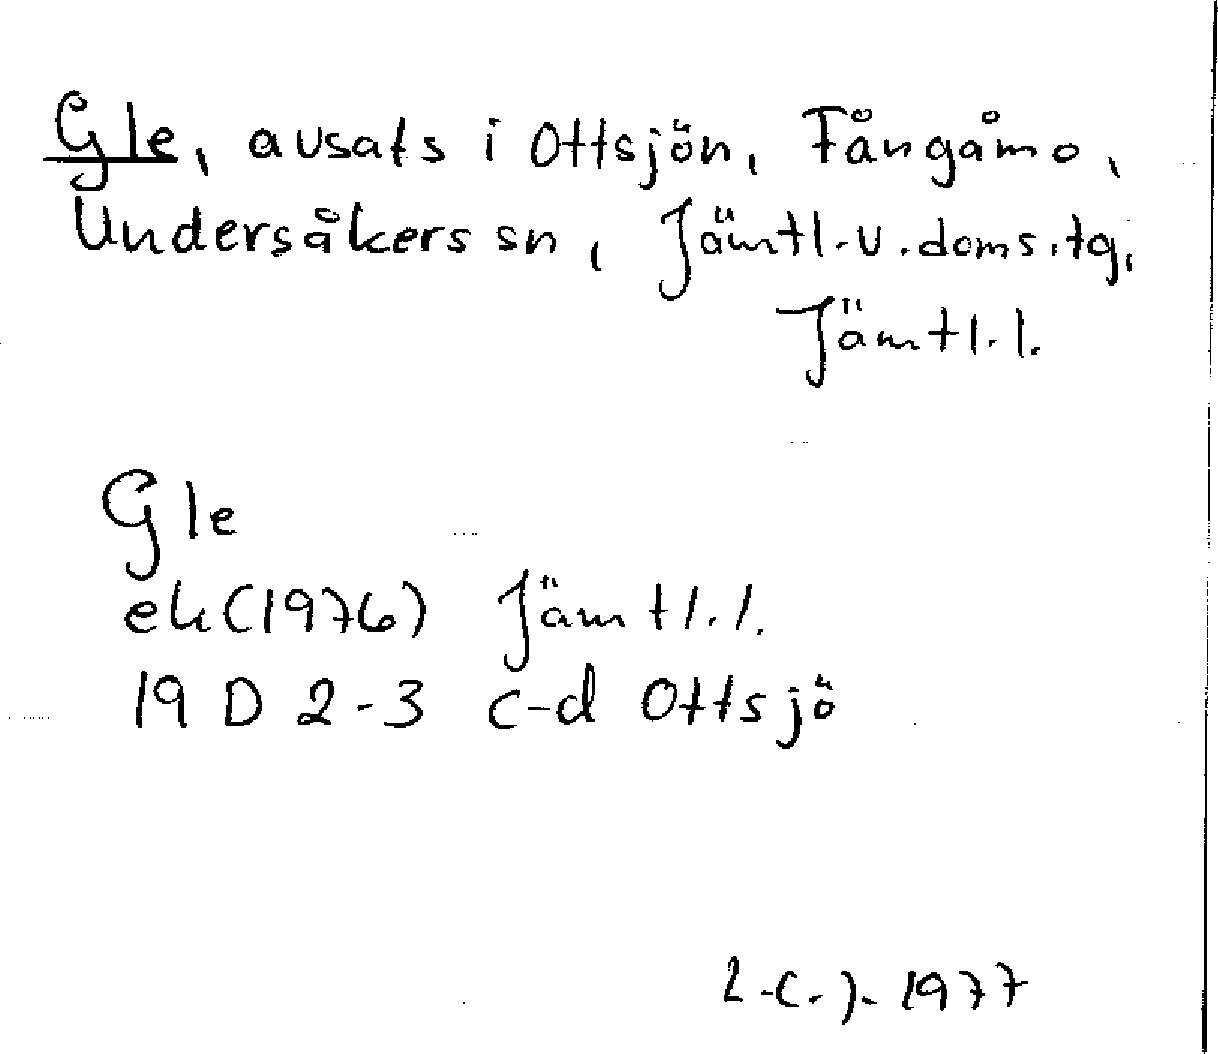 Gle, avsats i Ottsjön, Fångåmo,
Undersåkers sn, Jämtl.v.doms.tg,
Jämtl.l.
Gle
ek(1976) Jämtl.l.
19 D 2-3 c-d Ottsjö
1977